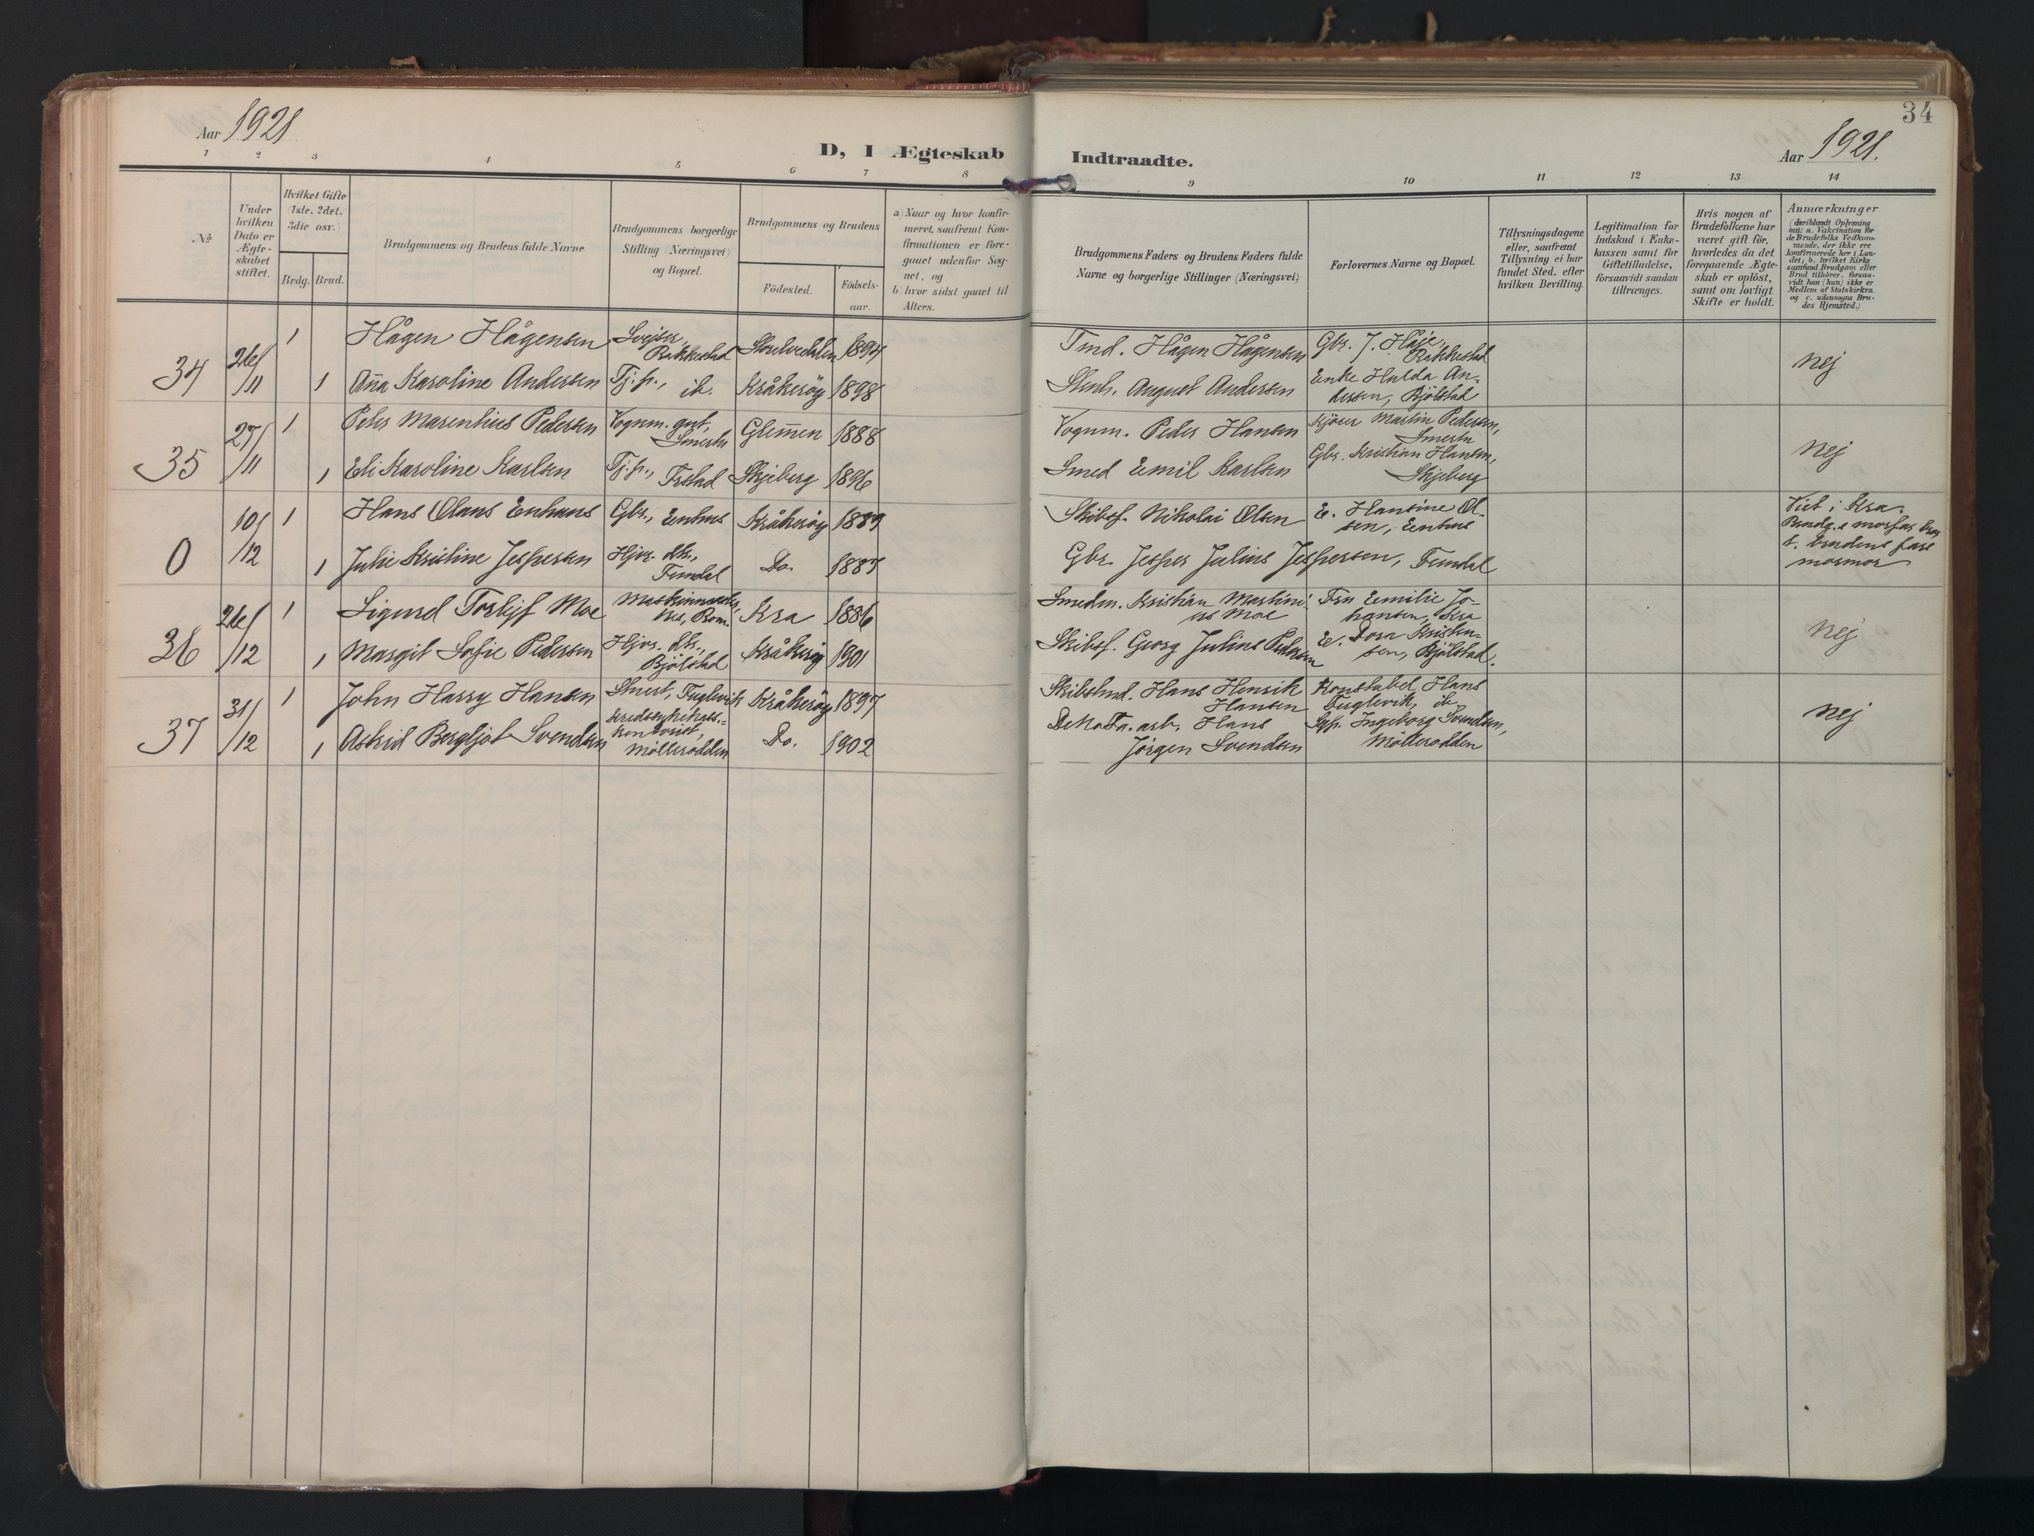 Aar 1921
D, I Ægteskab
Indtraadte.
Aar 1921.
34
1 2 3 4 5 6 7 8
9 10 11 12 13 14
№
Under hvilken Dato er Ægteskabet stiftet.
Hvilket Gifte (1ste, 2det, 3die osv.)
Brdg. Brud.
Brudgommens og Brudens fulde Navne
Brudgommens borgerlige Stilling (Næringsvei) og Bopæl.
Brudgommens og Brudens
Födested.
Födsels-aar.
a) Naar og hvor konfirmeret, saafremt Konfirmationen er foregaaet udenfor Sognet, og
b) hvor sidst gaaet til Alters.
Brudgommens Faders og Brudens Faders fulde Navne og borgerlige Stillinger (Næringsvei)
Forlovernes Navne og Bopæl.
Tillysningsdagene eller, saafremt Tillysning ei har fundet Sted, efter hvilken Bevilling.
Legitimation for Indskud i Enkekassen samt for Giftetilladelse, forsaavidt saadan tiltrænges.
Hvis nogen af Brudefolkene har været gift för, hvorledes da det foregaaende Ægteskab er oplöst, samt om lovligt Skifte er holdt.
Anmærkninger
(deriblandt Oplysning om: a. Vakcination for de Brudefolks Vedkommende, der ikke ere konfirmerede her i Landet; b. hvilket Kirkesamfund Brudgom eller Brud tilhörer, forsaavidt han (hun) ikke er Medlem af Statskirken og c. udensogns Brudes Hjemsted.)
34 26/11 1 Hågen Hågensen Rakkestad 1894
Tmd. Hågen Hågensen Gbr. J. Håje, Rakkestad nej
1 Aña Karoline Andersen Tj.p., ib. Kråkeröy 1898
Stenh. August Andersen Enke Hulda Andersen, Bjölstad
35 27/11 1 Peder Marenthius Pedersen Vognm. gut, Smertu Glem̄en 1888
Vognm. Peder Hansen Kjörer Martin Pedersen, Smertu nej
1 Eli Karoline Karlsen Tj.p., Frstad Skjeberg 1896
Smed Emil Karlsen Gbr. Kristian Hansen, Skjeberg
0 10/12 1 Hans Olans Enhuus Gbr., Enhus Kråkeröy 1887
Skibsf. Nikolai Olsen E. Hansine Olsen, Enhus Viet i Kra.
1 Julie Kristine Jespersen Hjvr. dtr., Femdal Do. 1887
Gbr. Jesper Julius Jespersen, Femdal brudens fars mormor
36 26/12 1 Sigurd Torleif Moe Kra 1886
Smedm. Kristian Martinius Moe Fru Emilie Johansen, Kra nej
1 Margit Sofie Pedersen Hjvr. dtr., Bjölstad Kråkeröy 1901
Skibsf. Georg Julius Pedersen E. Dora Kristensen, Bjölstad.
37 31/12 1 John Harry Hansen Stuert, Fuglevik Kråkeröy 1897
Skibstmd. Hans Henrik Hansen Konstabel Hans Fuglevik, ib. nej
1 Astrid Bergljot Svendsen Möllerodden Do. 1902
arb. Hans Jörgen Svendsen Ingeborg Svendsen, Möllerodden